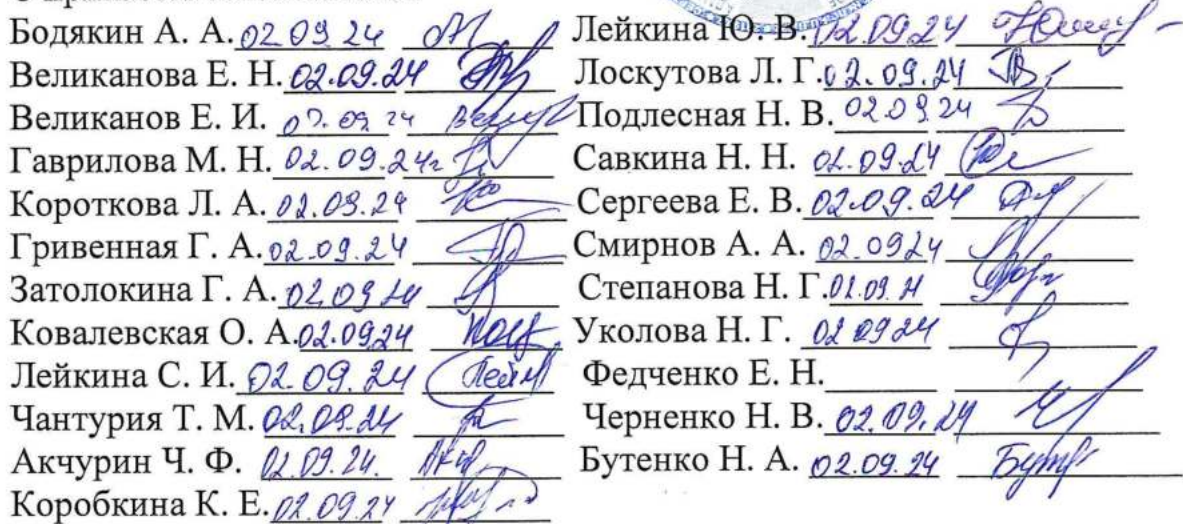 Бодякин А. А. 02 09 24
Великанова Е. Н. 02.09.24
Великанов Е. И. 02. 09 24
Гаврилова М. Н. 02.09.24г
Короткова Л. А. 02.09.24
Гривенная Г. А. 02.09.24
Затолокина Г. А. 02 09 24
Ковалевская О. А. 02.09.24
Лейкина С. И. 02.09.24
Чантурия Т. М. 02.09.24
Акчурин Ч. Ф. 02.09.24.
Коробкина К. Е. 02.09.24
Лейкина Ю. В. 02.09.24
Лоскутова Л. Г. 02.09.24
Подлесная Н. В. 02.09.24
Савкина Н. Н. 02.09.24
Сергеева Е. В. 02.09.24
Смирнов А. А. 02.0924
Степанова Н. Г. 02.09.24
Уколова Н. Г. 02 09 24
Федченко Е. Н.
Черненко Н. В. 02.09.24
Бутенко Н. А. 02.09.24